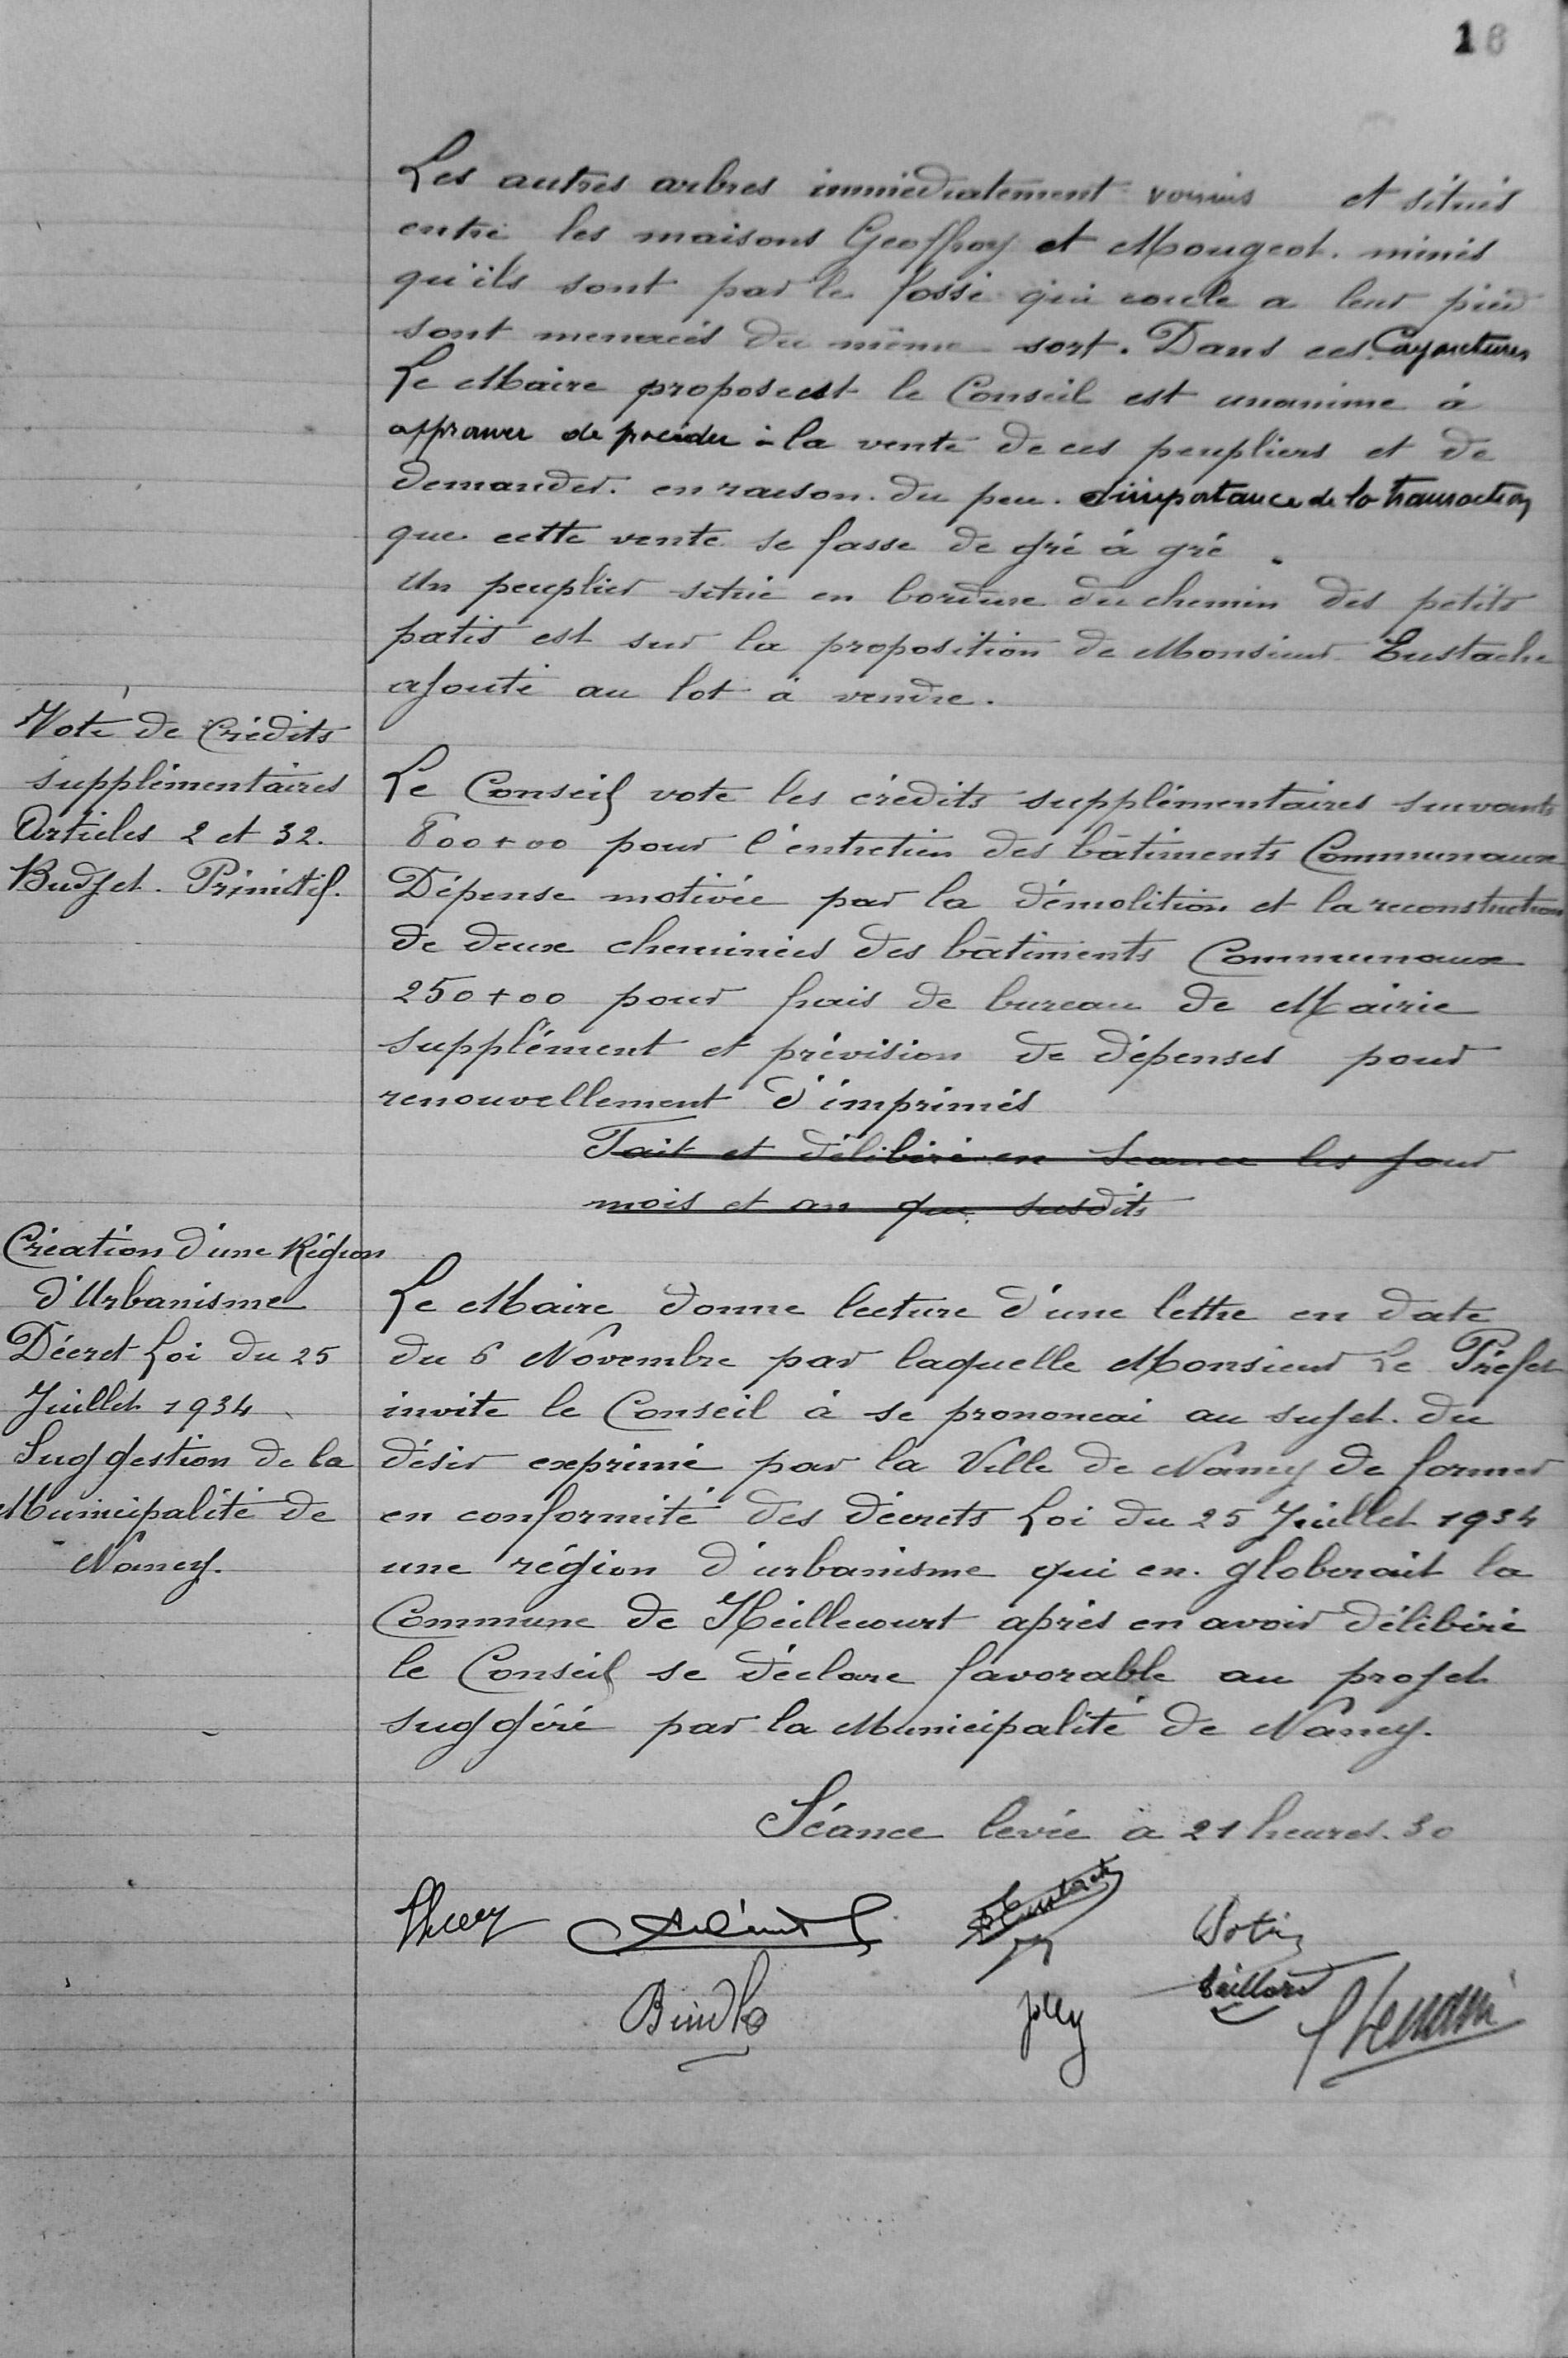 16
Les autres arbres immédiatement voisins et situés
entre les maisons Geoffroy et Mougeot. minés
qu'ils sont par le fossé qui coule a leur pied
sont menacés du même sort. Dans ces Conjonctures
Le Maire propose et le Conseil est unanime à
approuver de procéder à la vente de ces peupliers et de
demander. en raison. du peu. d'importance de la transaction
que cette vente se fasse de gré à gré.
Un peuplier situé en bordure du chemin des petits
patis est sur la proposition de Monsieur Eustache
ajouté au lot à vendre.
Vote de Crédits
supplémentaires
Articles 2 et 32.
Budget. Primitif.
Le Conseil vote les crédits supplémentaires suivants
800+00 pour l'entretien des bâtiments Communaux
Dépense motivée par la démolition et la reconstruction
de deux cheminées des bâtiments Communaux
250+00 pour frais de bureau de Mairie
supplément et prévision de dépenses pour
renouvellement d'imprimés
Fait et délibéré en Seance les jour
mois et an que susdits
Création d'une Région
d'Urbanisme
Décret Loi du 25
Juillet 1934
Suggestion de la
Municipalité de
Nancy.
Le Maire donne lecture d'une lettre en date
du 6 Novembre par laquelle Monsieur Le Préfet
invite le Conseil à se prononcai au sujet. du
désir exprimé par la Ville de Nancy de former
en conformité des décrets Loi du 25 Juillet 1934
une région d'urbanisme qui en. globerait la
Commune de Heillecourt après en avoir délibéré
le Conseil se déclare favorable au projet
suggéré par la Municipalité de Nancy.
Séance levée a 21 heures. 30
Eustache
Jolly